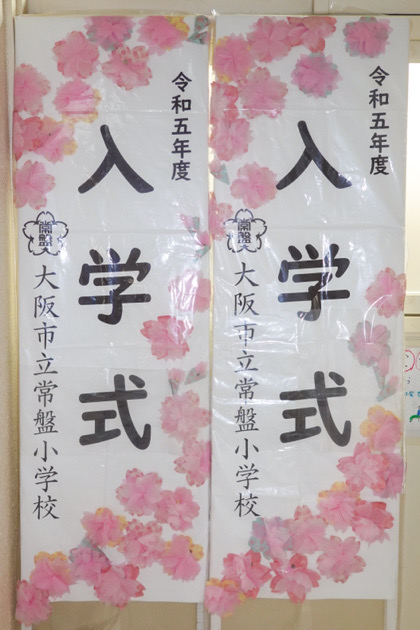 令和五年度
入学式
常盤
大阪市立常盤小学校
令和五年度
入学式
常盤
大阪市立常盤小学校